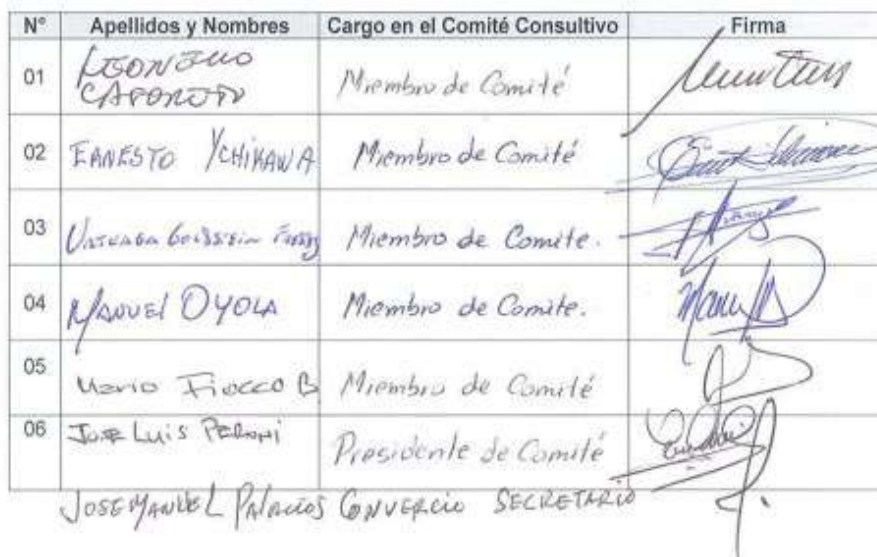 N° Apellidos y Nombres Cargo en el Comité Consultivo Firma
01 LEONCIO
CAFORIO Miembro de Comité
02 ERNESTO YCHIKAWA Miembro de Comité
03 Miembro de Comite.
04 MANUEL OYOLA Miembro de Comite.
05 Mario Fiocco B Miembro de Comité
06 JOSE LUIS PERONI Presidente de Comité
JOSE MANUEL PALACIOS CONVERCIO SECRETARIO